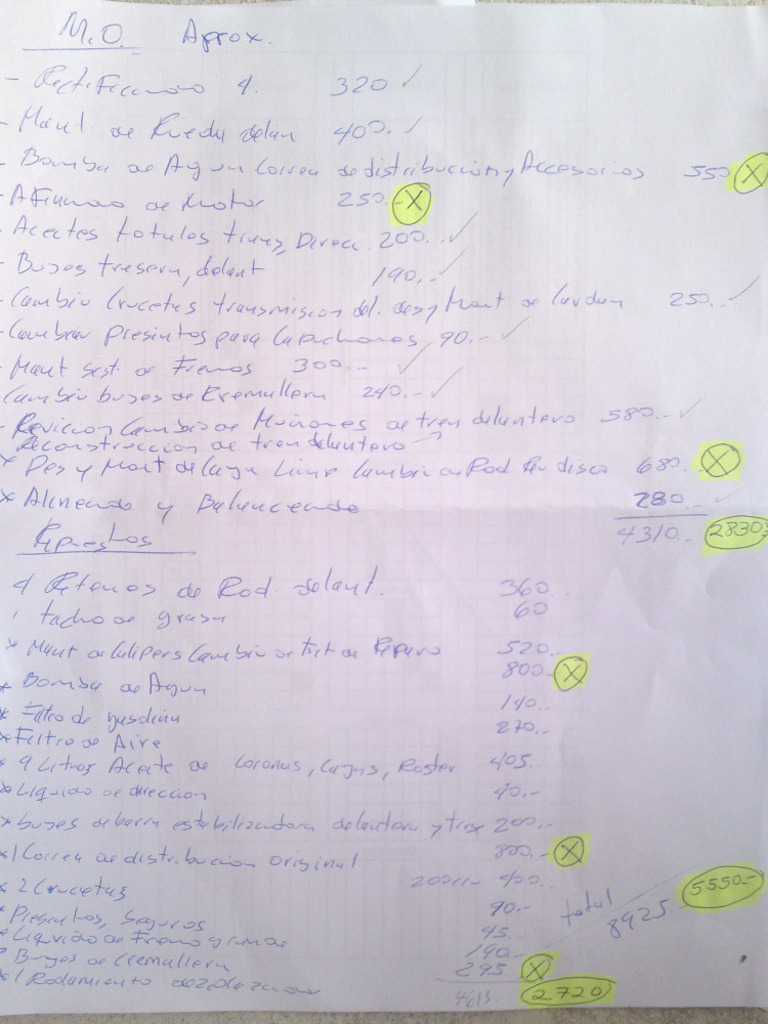 M.O. Aprox.
- Rectificando 4. 320 ✓
- Mant de Rueda delan 400.- ✓
- Bomba de Agua Correa de distribucion y Accesorios 550 X
- Afinado de Motor 250.- X
- Aceites totulos trans, Direcc. 200.- ✓
- Bujes trasera, delant 190.- ✓
- Cambio Crucetas transmision del. des y Mont de Cardan 250.- ✓
- Cambiar Presintos para Capuchones 90.- ✓
- Mant sist. de Frenos 300.- ✓
Cambio bujes de Cremallera 240.- ✓
- Revicion Cambio de Muñones de tren delantero 580.- ✓
Reconstruccion de tren delantero
x Des y Mont de Caja Limp Cambio de Rod disco 680.- X
x Alineado y Balanceado 280.- ✓
4310.- 2830
Repuestos
4 Retenes de Rod. delant. 360.-
1 tacho de grasa 60
x Mant de Calipers Cambio de Kit de Reparo 520.-
x Bomba de Agua 800.- X
x Filtro de gasolina 140.-
x Filtro de Aire 270.-
x 9 Litros Aceite de Coronas, Cajas, Roster 405.-
x Liquido de direccion 40.-
x bujes de barra estabilizadora delantera y tras 200.-
x 1 Correa de distribucion original 800.- X
x 2 Crucetas 200 c/u 400.-
x Presintos, Seguros 90.-
x Liquido de Freno grande 45.-
x Bujes de Cremallera 190.-
x 1 Rodamiento 295 X
4613 2720
total 8925 5550.-